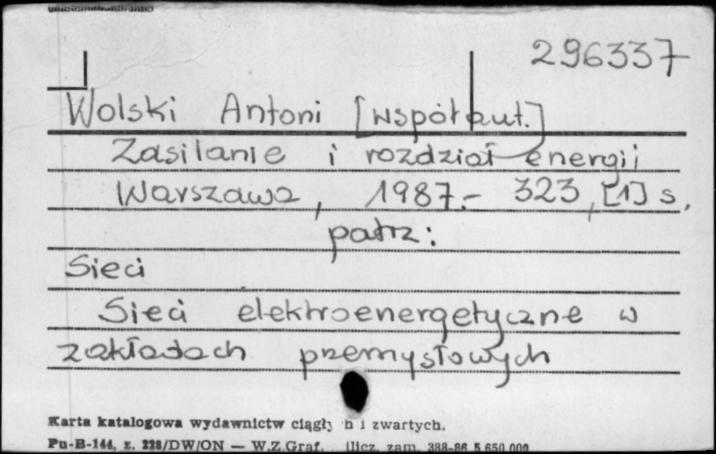 296337
Wolski Antoni [współaut.]
Zasilanie i rozdział energii
Warszawa, 1987.- 323, [1] s.
patrz:
Sieci
Sieci elektroenergetyczne w
zakładach przemysłowych
Karta katalogowa wydawnictw ciągły h i zwartych.
Pu-B-144, z. 228/DW/ON — W.Z.Graf. zam. 388-86 5.650.000